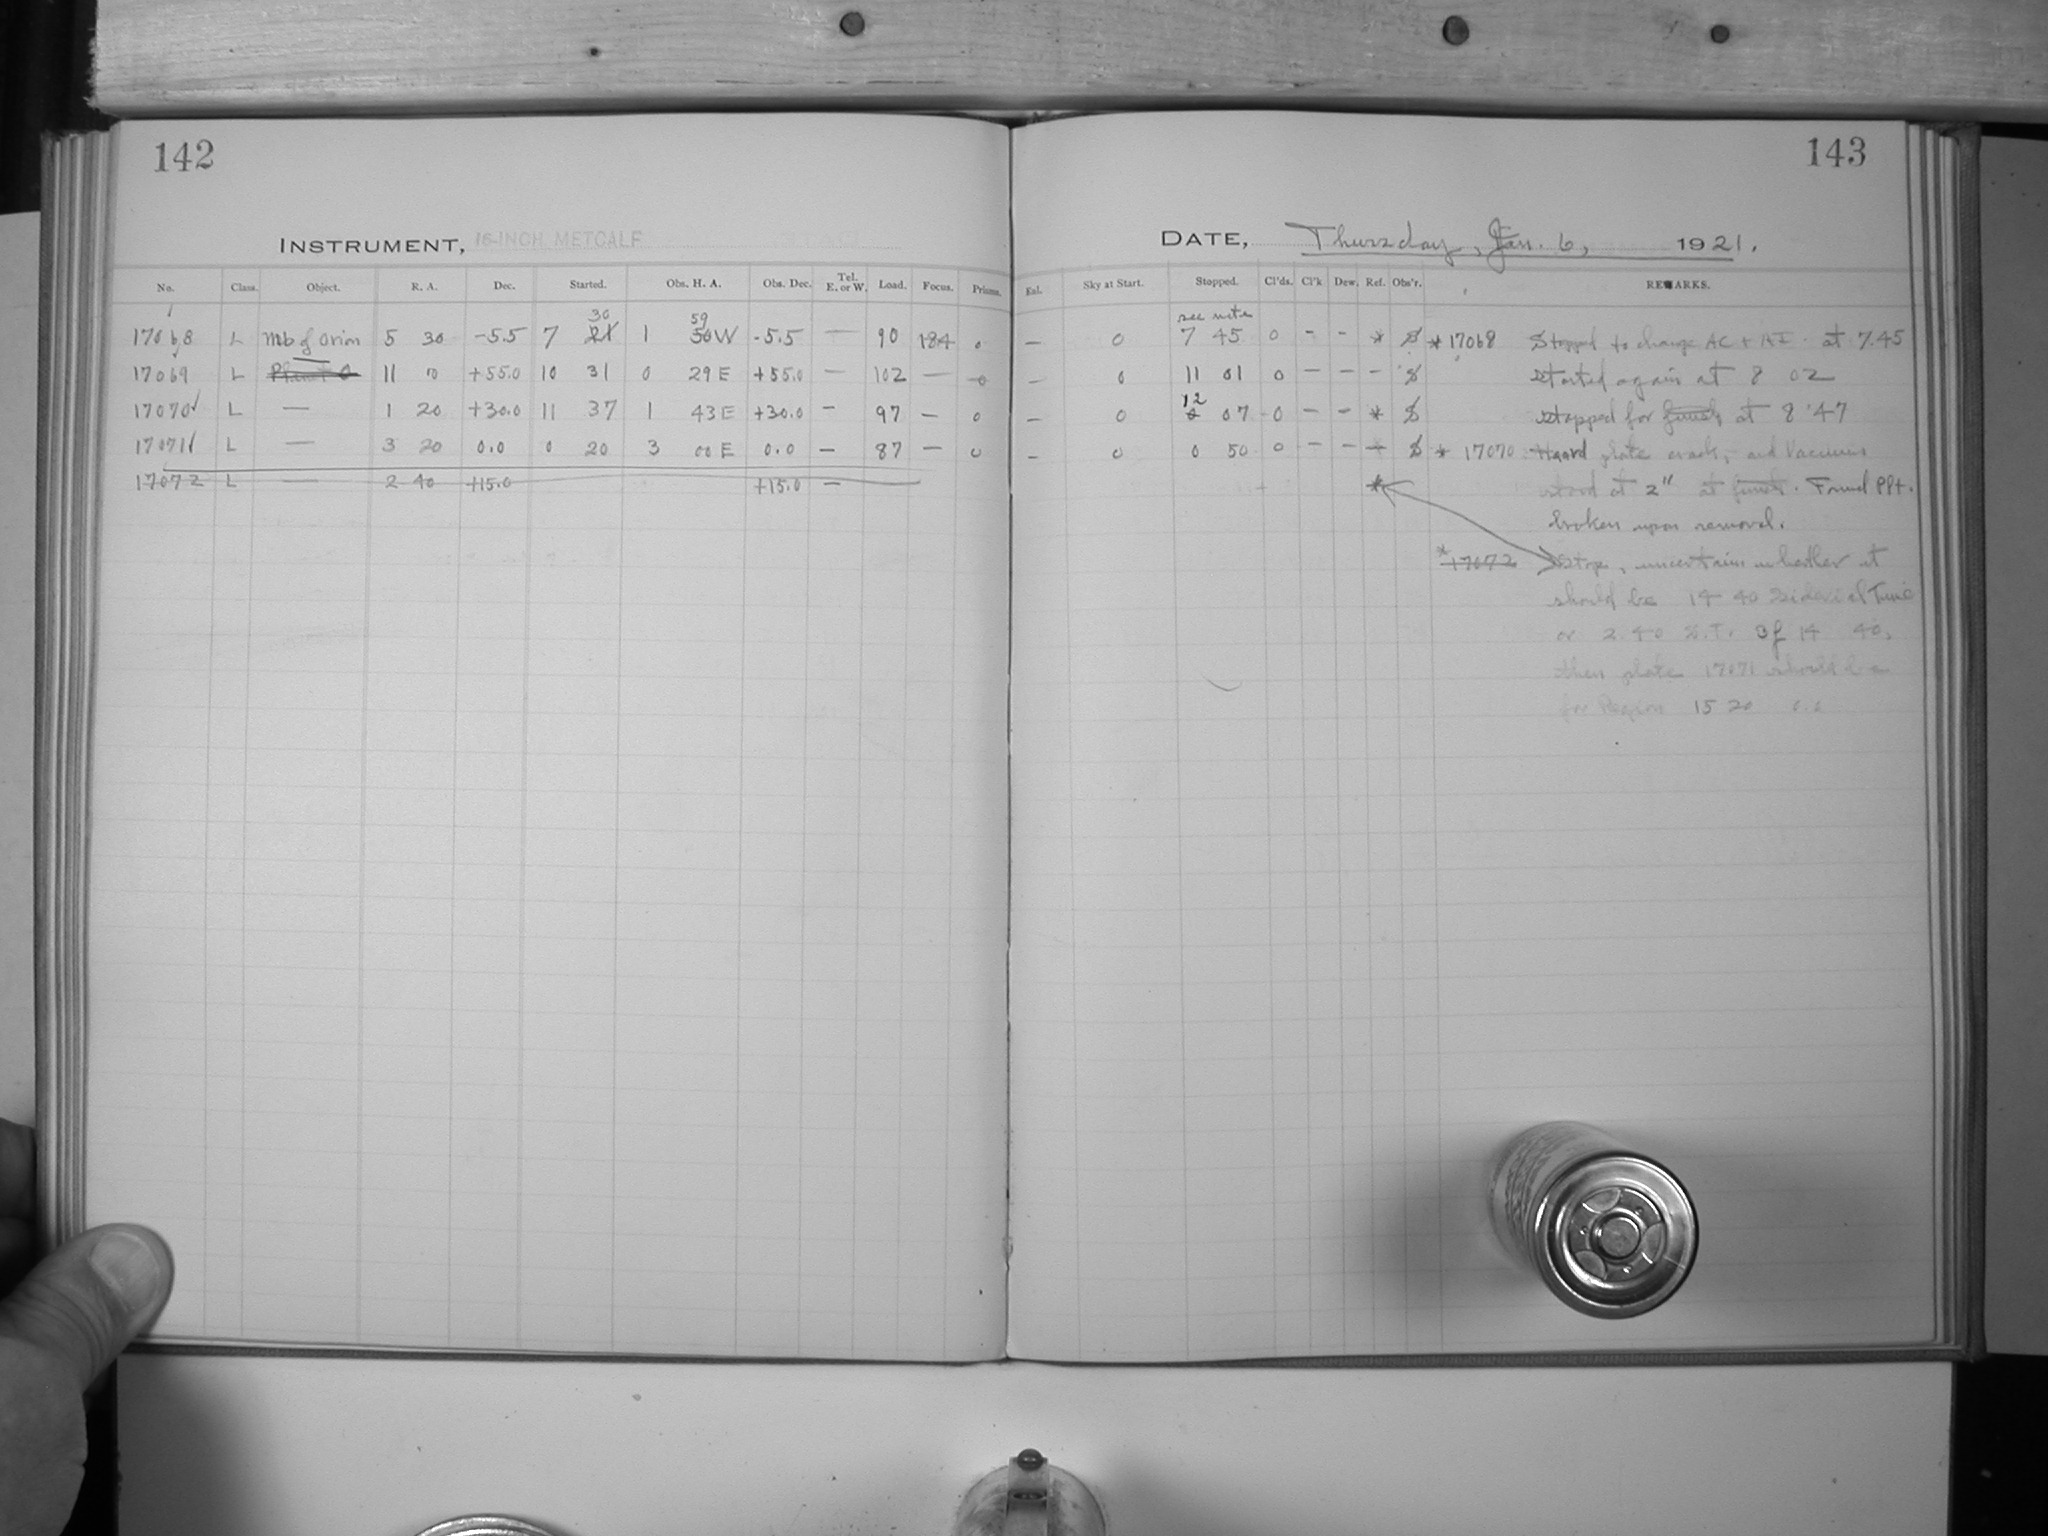 142
143
INSTRUMENT, 16-INCH METCALF
DATE, Thursday, Jan. 6, 1921.
No. Class. Object. R. A. Dec. Started. Obs. H. A. Obs. Dec. Tel. E. or W. Load. Focus. Prisms. Exl. Sky at Start. Stopped. Cl'ds. Cl'k Dew. Ref. Obs'r. REMARKS.
30 59 see note
17068 L Mb of Orion 5 30 -5.5 7 21 1 50 W -5.5 — 90 184 0 — 0 7 45 0 - - * S * 17068 Stopped to change AC + AI. at 7.45
17069 L Planet O 11 0 +55.0 10 31 0 29 E +55.0 — 102 — 0 — 0 11 01 0 - - - S started again at 8 02
12
17070 L — 1 20 +30.0 11 37 1 43 E +30.0 — 97 — 0 — 0 07 0 - - * S stopped for finish at 8 47
17071 L — 3 20 0.0 0 20 3 00 E 0.0 — 87 — 0 — 0 0 50 0 - - S * 17070 Heard plate crack, and Vacuum
17072 L — 2 40 +15.0 +15.0 — * stood at 2" at finish. Found Plt.
broken upon removal.
* 17072 Stop, uncertain whether it
should be 14 40 Sidereal Time
or 2 40 S.T. If 14 40,
then plate 17071 should be
for Region 15 20 0.0